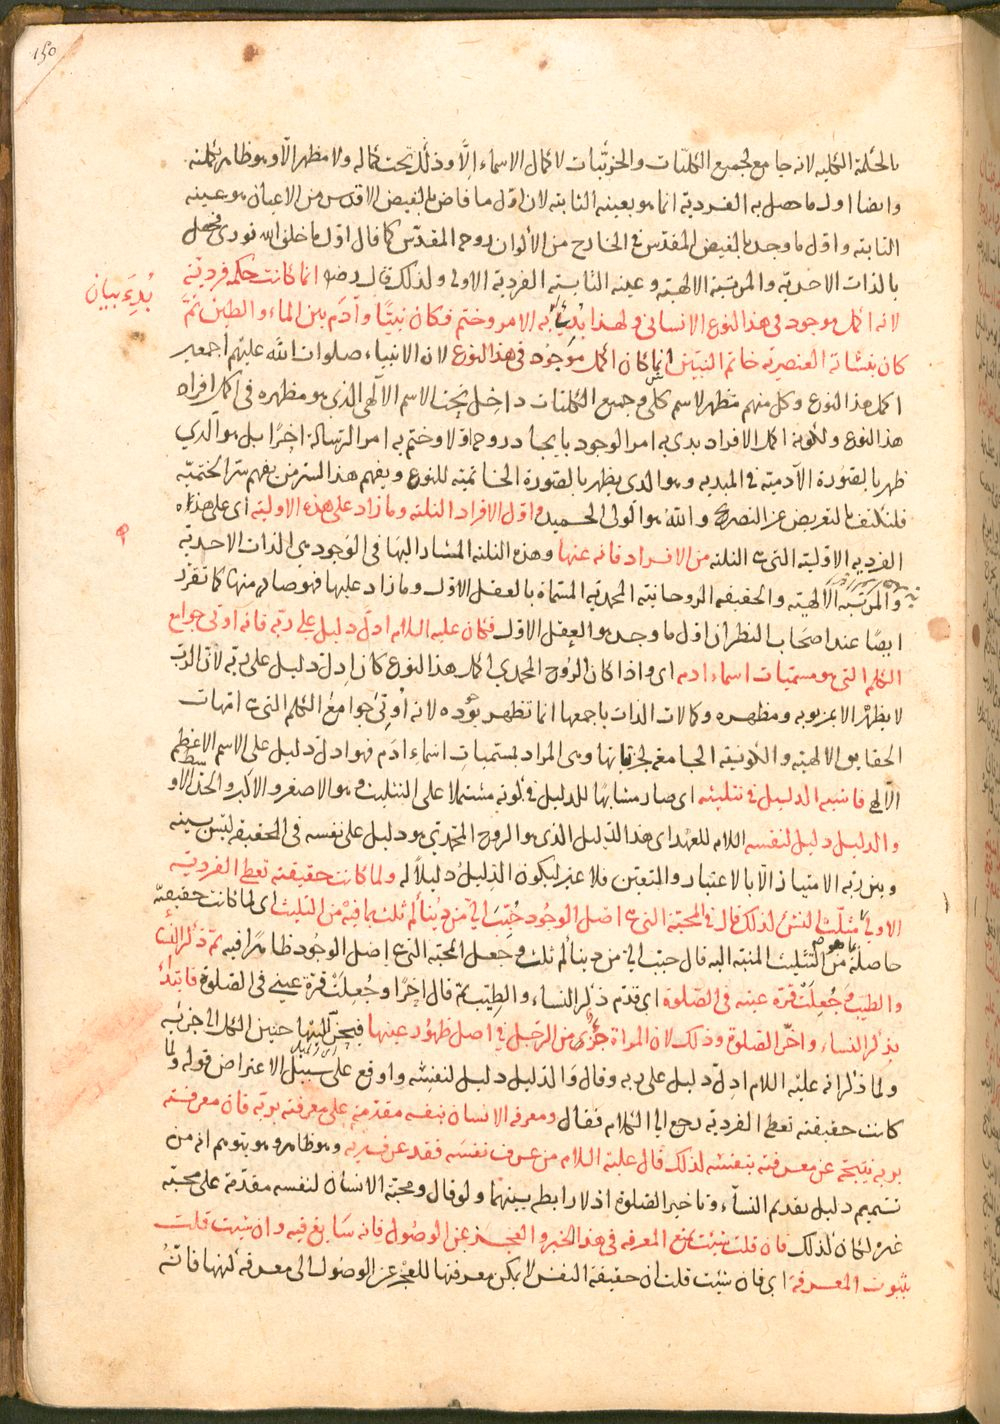 ١٥٠
بالحكمة الكلية لانه جامع لجميع الكليات والجزئيات لا كمال الاسماء الا وذلك تحت كماله ولا مظهر الا وهو ظاهر بكلمته
وايضا اول ما حصل به الفردية انما هو بعينه الثابتة لان اول ما فاض بالفيض الاقدس من الاعيان هو عينه
الثابتة واول ما وجد بالفيض المقدس في الخارج من الاكوان روحه المقدس كما قال اول ما خلق الله نوري فحصل
بالذات الاحدية والمرتبة الالهية وعينه الثابتة الفردية الاولى ولذلك قال رضه انما كانت حكمه فردية
لانه اكمل موجود في هذا النوع الانساني ولهذا بدئ به الامر وختم فكان نبيا وآدم بين الماء والطين ثم
بُدِئَ بيان
كان بنشأته العنصرية خاتم النبيين انما كان اكمل موجود في هذا النوع لان الانبياء صلوات الله عليهم اجمعين
اكمل هذا النوع وكل منهم مظهر لاسم كلي وجميع الكليات داخل تحت الاسم الالهي الذي هو مظهره فهو اكمل افراد
هذا النوع ولكونه اكمل الافراد بدئ به امر الوجود بايجاد روحه اولا وختم به امر الرسالة اخرا بل هو الذي
ظهر بالصورة الآدمية في المبدئية وهو الذي يظهر بالصورة الخاتمية للنوع ويفهم هذا السر من يفهم سر الختمية
فلنكتف بالتعريض عن التصريح والله هو الولي الحميد واول الافراد الثلثة وما زاد على هذه الاولية اي على هذه
الفردية الاولية التي هي الثلثة من الافراد فانه عنها وهذه الثلثة المشار اليها في الوجود هي الذات الاحدية
والمرتبة الالهية والحقيقة الروحانية المحمدية المسماة بالعقل الاول وما زاد عليها فهو صادر منها كما تقرر
ايضا عند اصحاب النظر ان اول ما وجد هو العقل الاول فكان عليه السلام ادل دليل على ربه فانه اوتي جوامع
الكلم التي هي مسميات اسماء آدم اي واذا كان الروح المحمدي اكمل هذا النوع كان ادل دليل على ربه لان الرب
لا يظهر الا بمربوبه ومظهره وكمالات الذات باجمعها انما تظهر بوجوده لانه اوتي جوامع الكلم التي هي امهات
الحقايق الالهية والكونية الجامعة لجزئياتها وهي المراد بمسميات اسماء آدم فهو ادل دليل على الاسم الاعظم
الالهي فاشبه الدليل في تثليثه اي صار مشابها للدليل في كونه مشتملا على التثليث وهو الاصغر والاكبر والحد الاوسط
والدليل دليل لنفسه اللام للعهد اي هذا الدليل الذي هو الروح المحمدي هو دليل على نفسه في الحقيقة ليس بينه
وبين ربه الامتياز الا بالاعتبار والتعين فلا غير ليكون الدليل دليلا له ولما كانت حقيقته تعطي الفردية
الاولى بما هو مثلث النشئ لذلك قال في المحبة التي هي اصل الوجود حُبّبَ اليّ من دنياكم ثلث بما فيه من التثليث اي لما كانت حقيقته
حاصلة من التثليث المنبه اليه قال حبب الي من دنياكم ثلث وجعل المحبة التي هي اصل الوجود ظاهرا فيه ثم ذكر النساء
والطيب وجعلت قرة عينه في الصلوة اي قدم ذكر النساء والطيب ثم قال اخرا وجعلت قرة عيني في الصلوة فابتدأ
بذكر النساء واخر الصلوة وذلك لان المرأة جزء من الرجل في اصل ظهور عينها فيحن اليها حنين الكل الى جزئه
ولما ذكر انه عليه السلام ادل دليل على ربه وقال والدليل دليل لنفسه واوقع على سبيل الاعتراض قوله ولما
كانت حقيقته تعطي الفردية رجع الى الكلام فقال ومعرفة الانسان بنفسه مقدمة على معرفته بربه فان معرفته
بربه نتيجة عن معرفته بنفسه لذلك قال عليه السلام من عرف نفسه فقد عرف ربه وهو ظاهر وهو يتوهم انه من
تتميم دليل تقديم النساء وتاخير الصلوة اذ لا رابط بينهما ولو قال ومحبة الانسان لنفسه مقدمة على محبة
غيره لكان كذلك فان قلت شئت بمنع المعرفة في هذا الخبر والعجز عن الوصول فانه سايغ فيه وان شئت قلت
بثبوت المعرفة اي فان شئت قلت ان حقيقة النفس لا يمكن معرفتها للعجز عن الوصول الى معرفة كنهها فانه